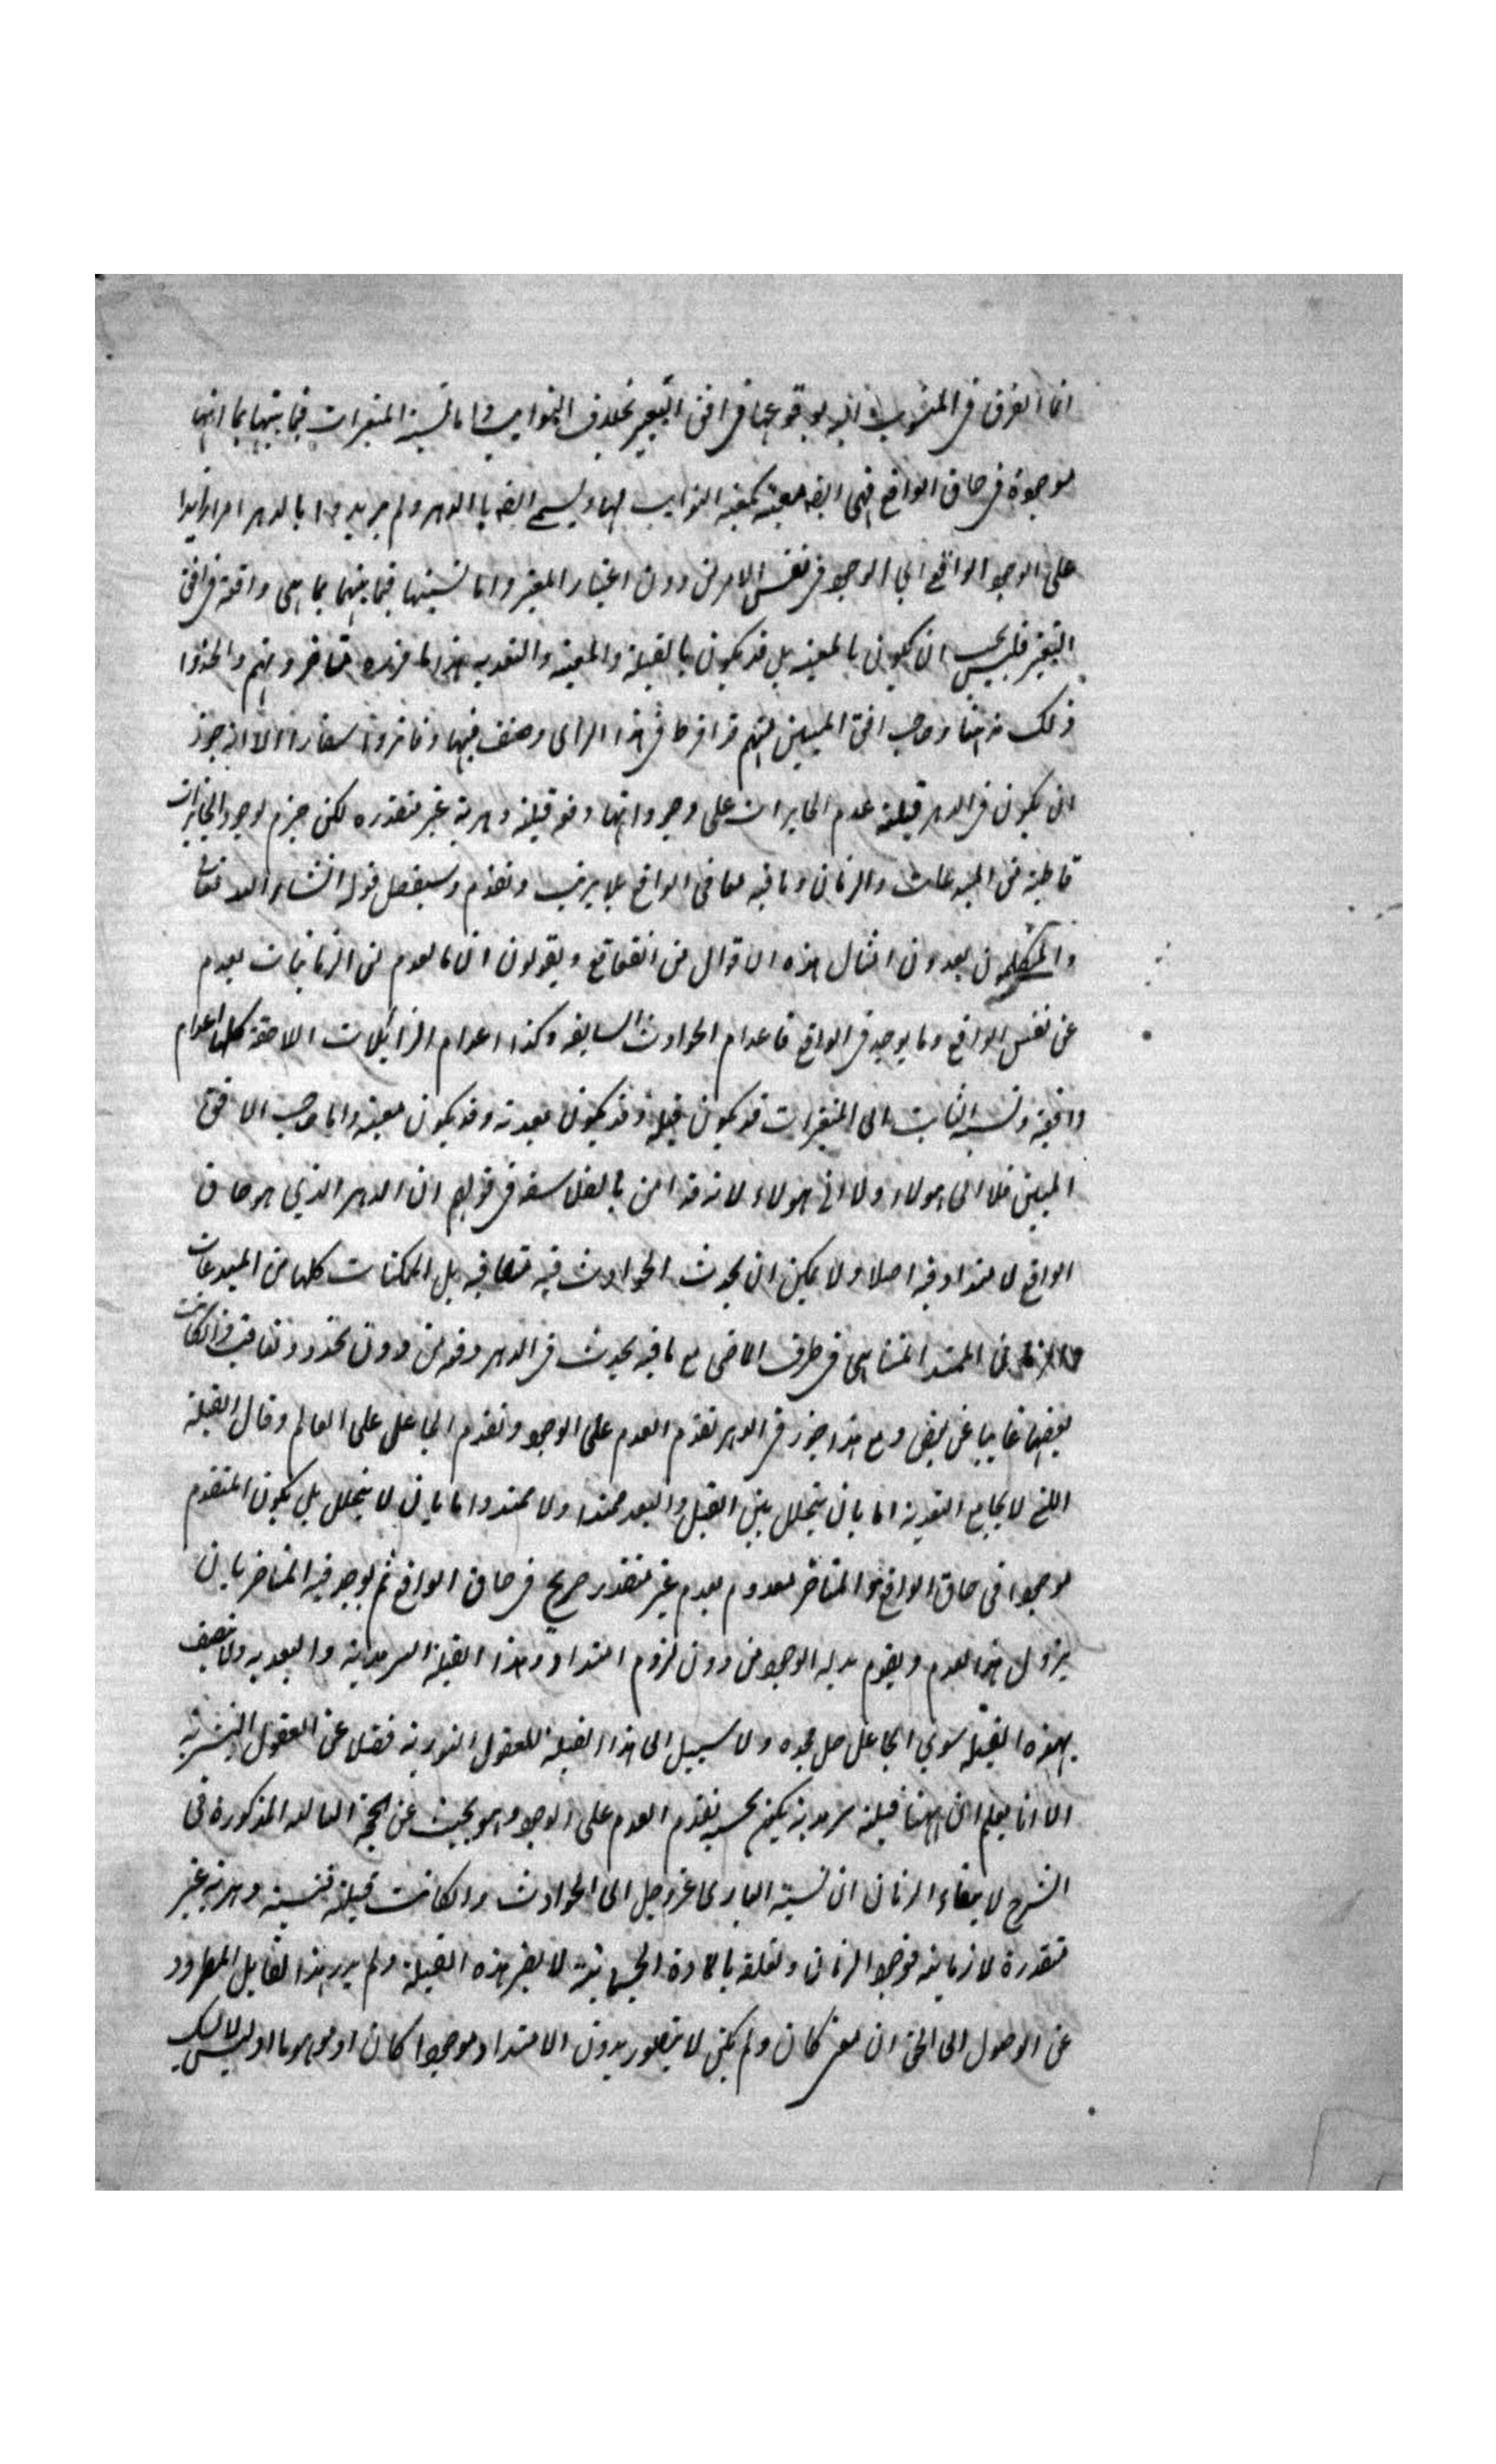 انما الفرق فى المنسوب اليه لوقوعها فى افق التغير بخلاف الثوابت واما نسبة المتغيرات فيما بينها بما انها
موجودة فى حاق الواقع فهى ايضا معية كمعية الثوابت لها ويسمى ايضا بالدهر ولم يريدوا بالدهر امرا زايدا
على الوجود الواقع اى الوجود فى نفس الامر من دون اعتبار المعتبر واما نسبتها فيما بينهما بما هى واقعة فى افق
التغير فليس يجب ان يكون بالمعية بل قد يكون بالقبلية والمعية والبعدية هذا ما متاخروهم والخذوا
ذلك وصاحب افق المبين منهم قد افرط فى هذا الراى وصنف فيها اسفارا الا انه جوز
ان يكون فى الدهر قبلية عدم الجايزات على وجوداتها وهو قبلية دهرية غير متقدرة لكن جزم بوجود الجايزات
قاطبة من المبدعات والزمان وما فيه معا فى الواقع بلا ترتيب وتقدم وسيفصل قوله انشاء الله تعالى
والمتكلمون يعدون امثال هذه الاقوال من ويقولون ان ما يعدم من الزمانيات يعدم
عن نفس الواقع وما يوجد فى الواقع فاعدام الحوادث السابقة وكذا اعدام الزايلات اللاحقة كلها اعدام
واقعية ونسبة الثابت الى المتغيرات قد يكون قبلية وقد يكون بعدية وقد يكون معية واما صاحب الافق
المبين فلا الى هولاء ولا الى هولاء لانه قد امن بالفلاسفة فى قولهم ان الدهر الذي هو حاق
الواقع لا امتداد فيه اصلا ولا يمكن ان يحدث الحوادث فيه متعاقبة بل الممكنات كلها من المبدعات
والزمان الممتد المتناهى فى طرف الماضى مع ما فيه يحدث فى الدهر دفعة من دون تجدد وتعاقب وان كانت
بعضها غايبا عن بعض ومع هذا جوز فى الدهر تقدم العدم على الوجود وتقدم الجاعل على العالم وقال القبلية
التى لا يجامع البعدية اما بان يتخلل بين القبل والبعد ممتد او لا ممتد واما بان لا يتخلل بل يكون المتقدم
موجودا فى حاق الواقع والمتاخر معدوم بعدم غير متقدر صريح فى حاق الواقع ثم يوجد فيه المتاخر بان
يزول هذا العدم ويقوم بدله الوجود من دون لزوم امتداد وهذا القبلية السرمدية والبعدية ولا يتصف
بهذه القبلية سوى الجاعل جل مجده ولا سبيل الى هذا القبلية للعقول النورية فضلا عن العقول البشرية
الا انا نعلم ان ههنا قبلية سرمدية يمكن بحسبه تقدم العدم على الوجود وهو يجيب عن الحجة المذكورة فى
الشرح لا بقاء الزمان ان نسبة البارى عز وجل الى الحوادث وان كانت قبلية فنسبة دهرية غير
متقدرة لا زمانية فوجود الزمان وتعلقه بالمادة الجسمانية لا يضر هذه القبلية ولم يدر هذا القايل المطرود
عن الوصول الى الحق ان معنى كان ولم يكن لا يتصور بدون الامتداد موجودا كان او موهوما او ليس لا ليس